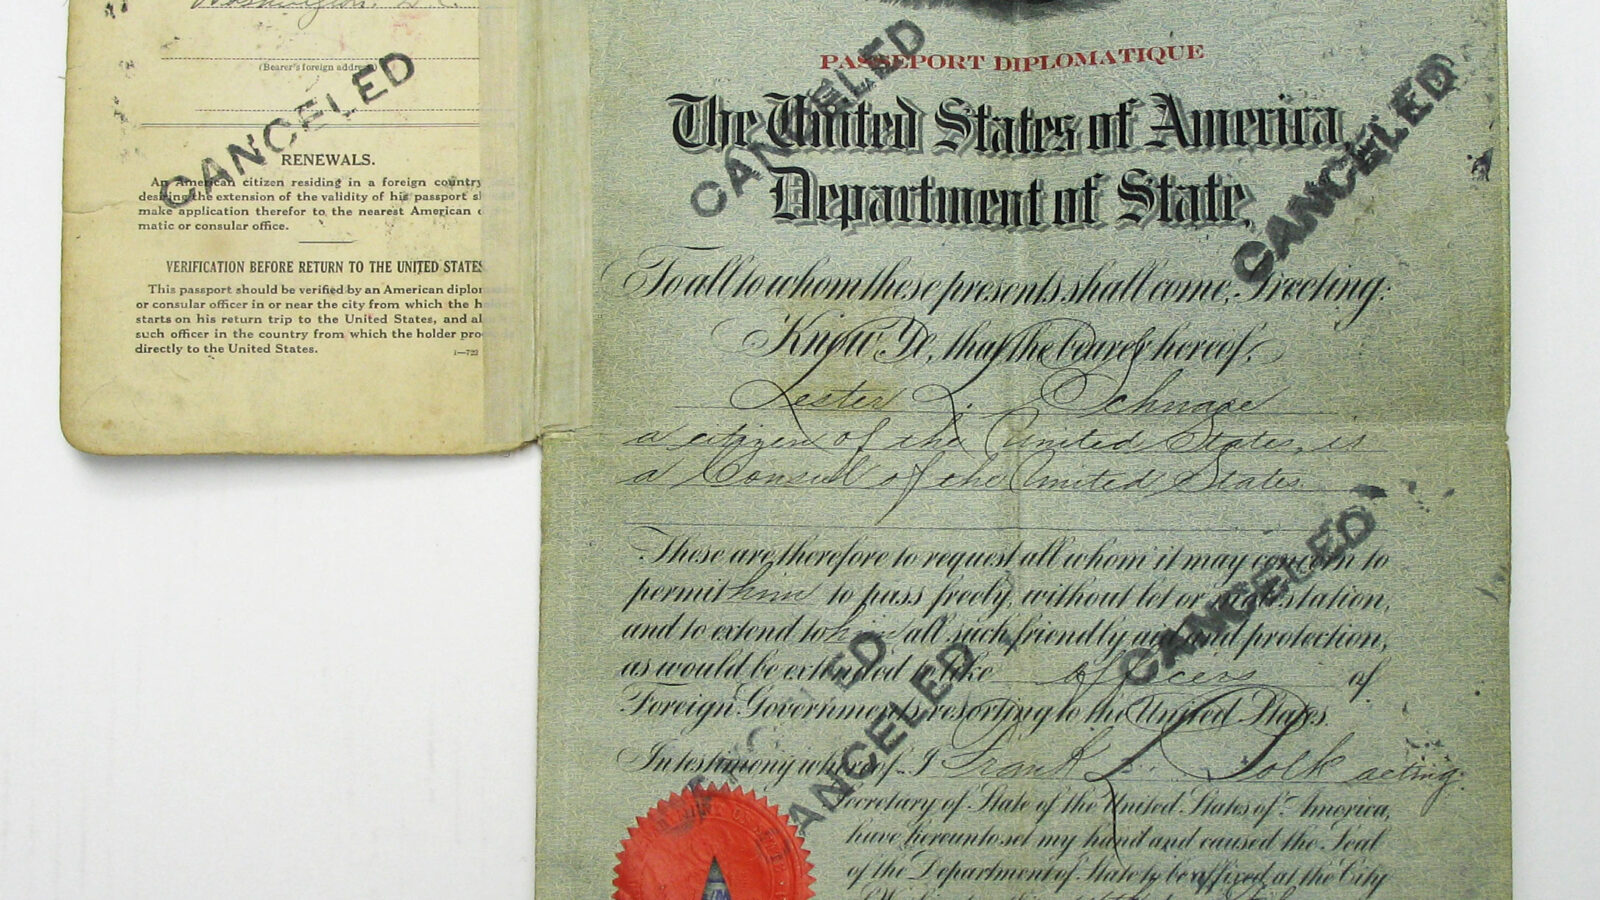 Washington, D.C.
(Bearer's foreign address)
CANCELED
RENEWALS.
An American citizen residing in a foreign country
desiring the extension of the validity of his passport
make application therefor to the nearest American
matic or consular office.
VERIFICATION BEFORE RETURN TO THE UNITED STATES
This passport should be verified by an American diplo
or consular officer in or near the city from which the
starts on his return trip to the United States, and
such officer in the country from which the holder pro
directly to the United States.
1—722
PASSEPORT DIPLOMATIQUE
CANCELED
CANCELED
The United States of America,
Department of State,
To all to whom these presents shall come, Greeting:
Know Ye, that the bearer hereof,
Lester L. Schnare
a citizen of the United States, is
a Consul of the United States
These are therefore to request all whom it may concern to
permit him to pass freely, without let or molestation,
and to extend to him all such friendly aid and protection,
as would be extended to like officers of
Foreign Governments resorting to the United States.
CANCELED
CANCELED
CANCELED
In testimony whereof, I Frank L. Polk acting
Secretary of State of the United States of America,
have hereunto set my hand and caused the Seal
of the Department of State to be affixed at the City